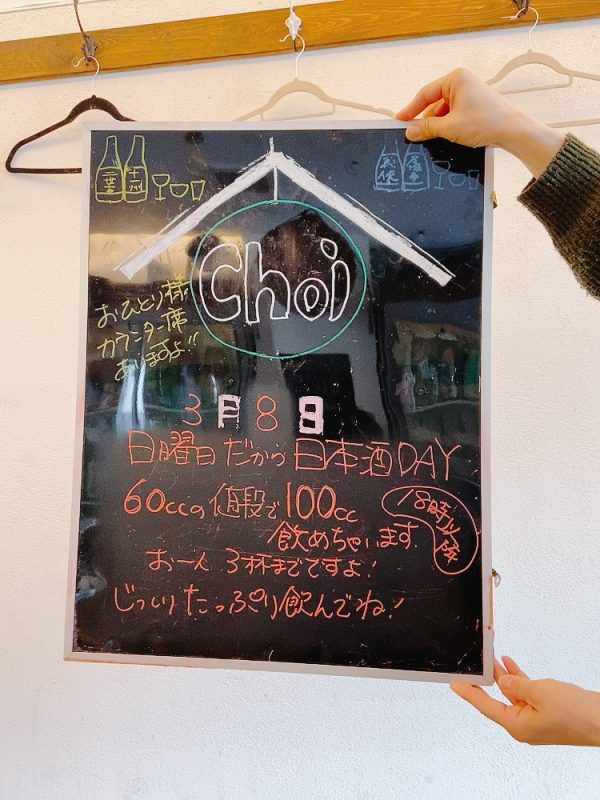 Choi
おひとり様
カウンター席
ありますよ!!
3月8日
日曜日だから日本酒DAY
60ccの値段で100cc
飲めちゃいます
18時以降
お一人3杯までですよ!
じっくりたっぷり飲んでね!